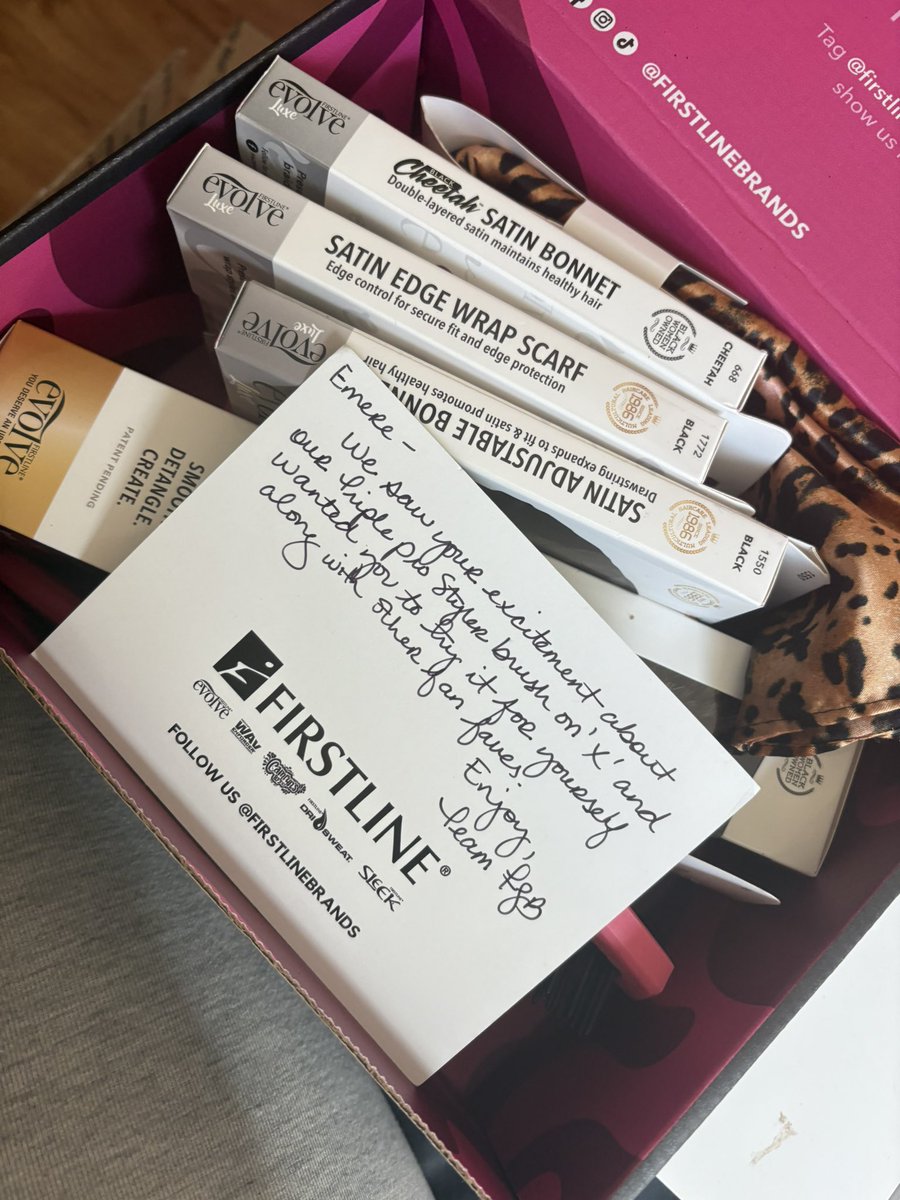 @FIRSTLINEBRANDS
Tag @firstlin
show us
FIRSTLINE®
evolve
Luxe
Black
Cheetah™ SATIN BONNET
Double-layered satin maintains healthy hair
BLACK
WOMEN
OWNED
668
CHEETAH
FIRSTLINE®
evolve
Luxe
SATIN EDGE WRAP SCARF
Edge control for secure fit and edge protection
1986
MULTICULTURAL HAIRCARE LEADING
1772
BLACK
FIRSTLINE®
evolve
Luxe
SATIN ADJUSTABLE BONN
Drawstring expands to fit & satin promotes healthy hair
1986
MULTICULTURAL HAIRCARE LEADING
1550
BLACK
FIRSTLINE®
evolve
YOU DESERVE AN
PATENT PENDING
SMOO
DETANGLE.
CREATE.
Emere -
We saw your excitement about
our triple pro styler brush on 'X' and
wanted you to try it for yourself
along with other fan faves!
Enjoy,
Team FSB
FIRSTLINE®
evolve
WAV
DRI SWEAT
SLEEK
FOLLOW US @FIRSTLINEBRANDS
BLACK
WOMEN
OWNED